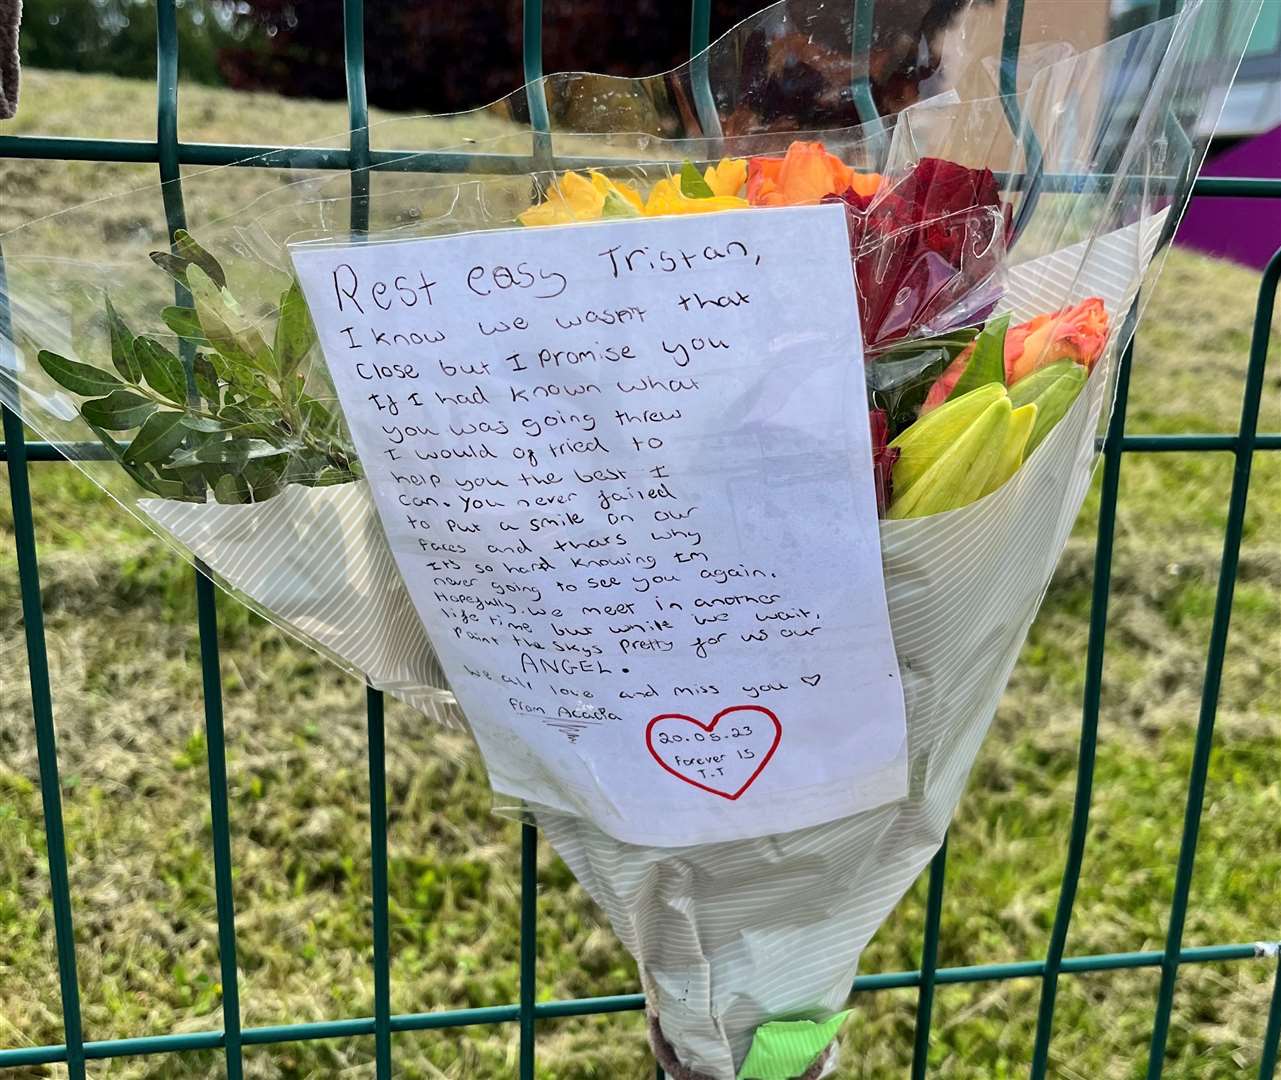 Rest easy Tristan,
I know we wasn't that
close but I promise you
If I had known what
you was going threw
I would of tried to
help you the best I
can. You never failed
to put a smile on our
faces and thats why
It's so hard knowing Im
never going to see you again.
Hopefully we meet in another
life time but while we wait,
Paint the skys pretty for us our
ANGEL.
we all love and miss you ♡
From Acacia
20.05.23
Forever 15
T.T